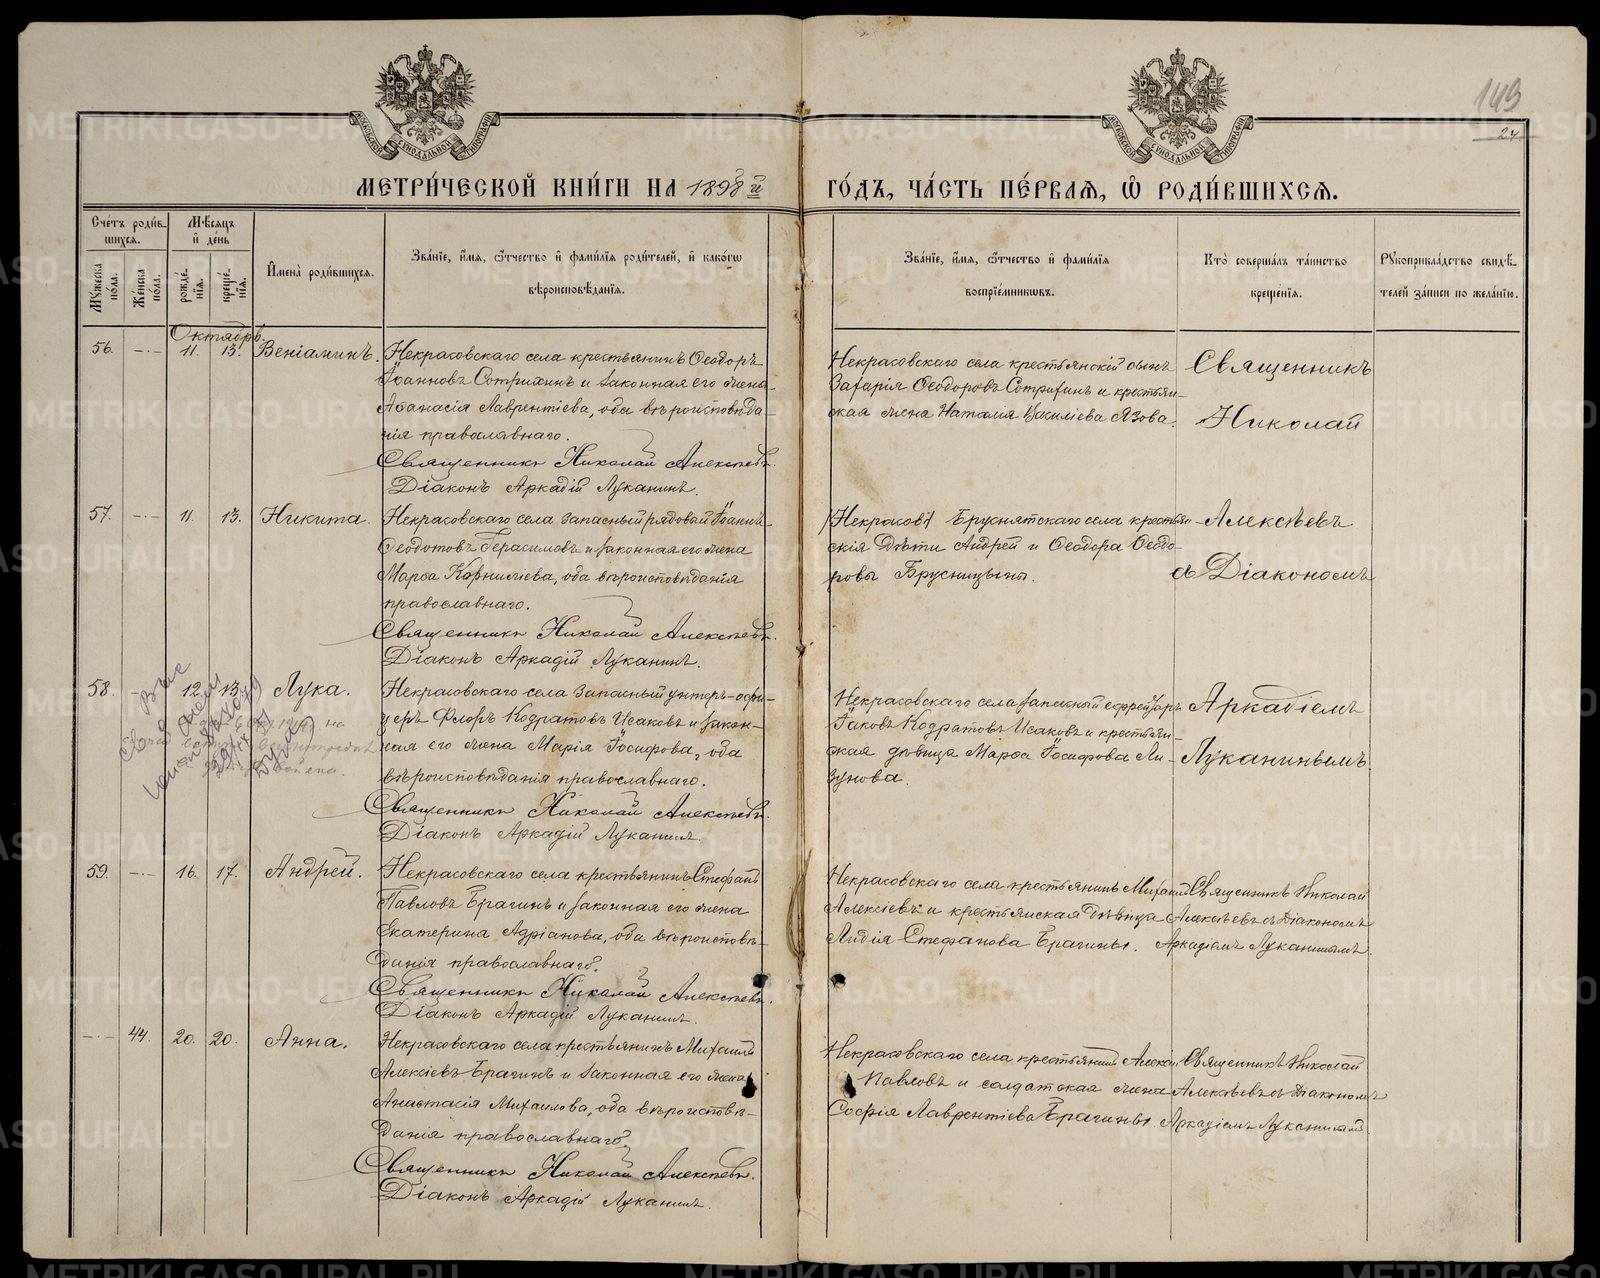 149
24
МОСКОВСКОЙ СѴНОДАЛЬНОЙ ТИПОГРАФІИ
МОСКОВСКОЙ СѴНОДАЛЬНОЙ ТИПОГРАФІИ
МЕТРИ́ЧЕСКОЙ КНИ́ГИ НА 1898 й ГО́ДЪ, ЧА́СТЬ ПЕ́РВАѦ, Ѽ РОДИ́ВШИХСѦ.
Сче́тъ роди́вшихсѧ.
Мꙋ́жеска по́ла.
Же́нска по́ла.
Мѣ́сѧцъ и҆ де́нь
рожде́нїѧ.
креще́нїѧ.
И҆мена̀ роди́вшихсѧ.
Зва́нїе, и҆́мѧ, ѻ҆́тчество и҆ фамі́лїѧ роди́телей, и҆ како́гѡ
вѣроисповѣ́данїѧ.
Зва́нїе, и҆́мѧ, ѻ҆́тчество и҆ фамі́лїѧ
воспрїе́мникѡвъ.
Кто̀ соверша́лъ та́инство
креще́нїѧ.
Рꙋкоприкла́дство свидѣ́-
телей за́писи по жела́нїю.
Октябрь.
56. -·- 11. 13. Веніаминъ.
Некрасовскаго села крестьянинъ Ѳеодоръ
Іоанновъ Сотрихинъ и законная его жена
Аѳанасія Лаврентіева, оба вѣроисповѣда-
нія православнаго.
Священникъ Николай Алексѣевъ.
Діаконъ Аркадій Луканинъ.
Некрасовскаго села крестьянскій сынъ
Захарія Ѳеодоровъ Сотрихинъ и крестьян-
ская жена Наталія Василіева Язова.
Священникъ
Николай
57. -·- 11. 13. Никита.
Некрасовскаго села запасный рядовой Іоаннъ
Ѳеодотовъ Герасимовъ и законная его жена
Марѳа Корниліева, оба вѣроисповѣданія
православнаго.
Священникъ Николай Алексѣевъ.
Діаконъ Аркадій Луканинъ.
/Некрасов/ Бруснятскаго села крестьян-
скія дѣти Андрей и Ѳеодора Ѳеодо-
ровы Брусницыны.
Алексѣевъ
съ Діакономъ
58. 12. 13. Лука.
Некрасовскаго села запасный унтеръ-офи-
церъ Флоръ Кодратовъ Исаковъ и закон-
ная его жена Марія Іосифова, оба
вѣроисповѣданія православнаго.
Священникъ Николай Алексѣевъ.
Діаконъ Аркадій Луканинъ.
Некрасовскаго села запасный ефрейторъ
Іаковъ Кодратовъ Исаковъ и крестьян-
ская дѣвица Марѳа Іосифова Ли-
зунова.
Аркадіемъ
Луканинымъ.
59. -·- 16. 17. Андрей.
Некрасовскаго села крестьянинъ Стефанъ
Павловъ Брагинъ и законная его жена
Екатерина Адріанова, оба вѣроисповѣ-
данія православнаго.
Священникъ Николай Алексѣевъ.
Діаконъ Аркадій Луканинъ.
Некрасовскаго села крестьянинъ Михаилъ
Алексіевъ и крестьянская дѣвица
Лидія Стефанова Брагины.
Священникъ Николай
Алексѣевъ съ Діакономъ
Аркадіемъ Луканинымъ
-·- 44. 20. 20. Анна.
Некрасовскаго села крестьянинъ Михаилъ
Алексіевъ Брагинъ и законная его жена
Анастасія Михаилова, оба вѣроисповѣ-
данія православнаго.
Священникъ Николай Алексѣевъ.
Діаконъ Аркадій Луканинъ.
Некрасовскаго села крестьянинъ Алексій
Павловъ и солдатская жена
Софія Лаврентіева Брагины.
Священникъ Николай
Алексѣевъ съ Діакономъ
Аркадіемъ Луканинымъ
METRIKI.GASO-URAL.RU